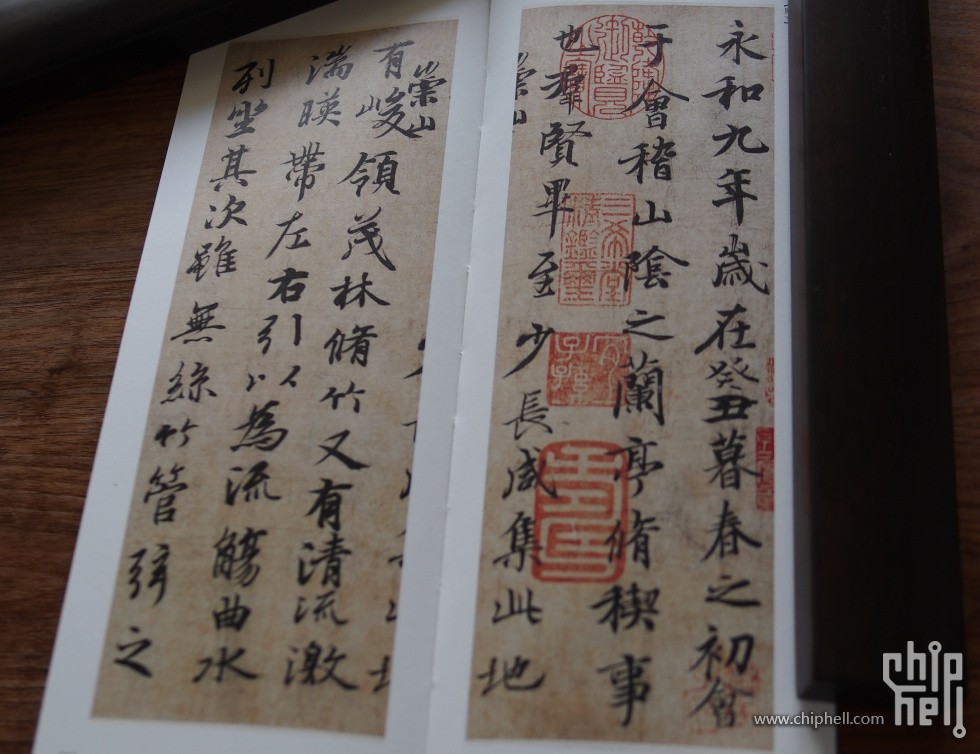 永和九年歲在癸丑暮春之初會
于會稽山陰之蘭亭脩稧事
也羣賢畢至少長咸集此地
崇山
崇山
有峻領茂林脩竹又有清流激
湍暎帶左右引以為流觴曲水
列坐其次雖無絲竹管弦之
三希堂
精鑑璽
宜子孫
www.chiphell.com
chip
hell